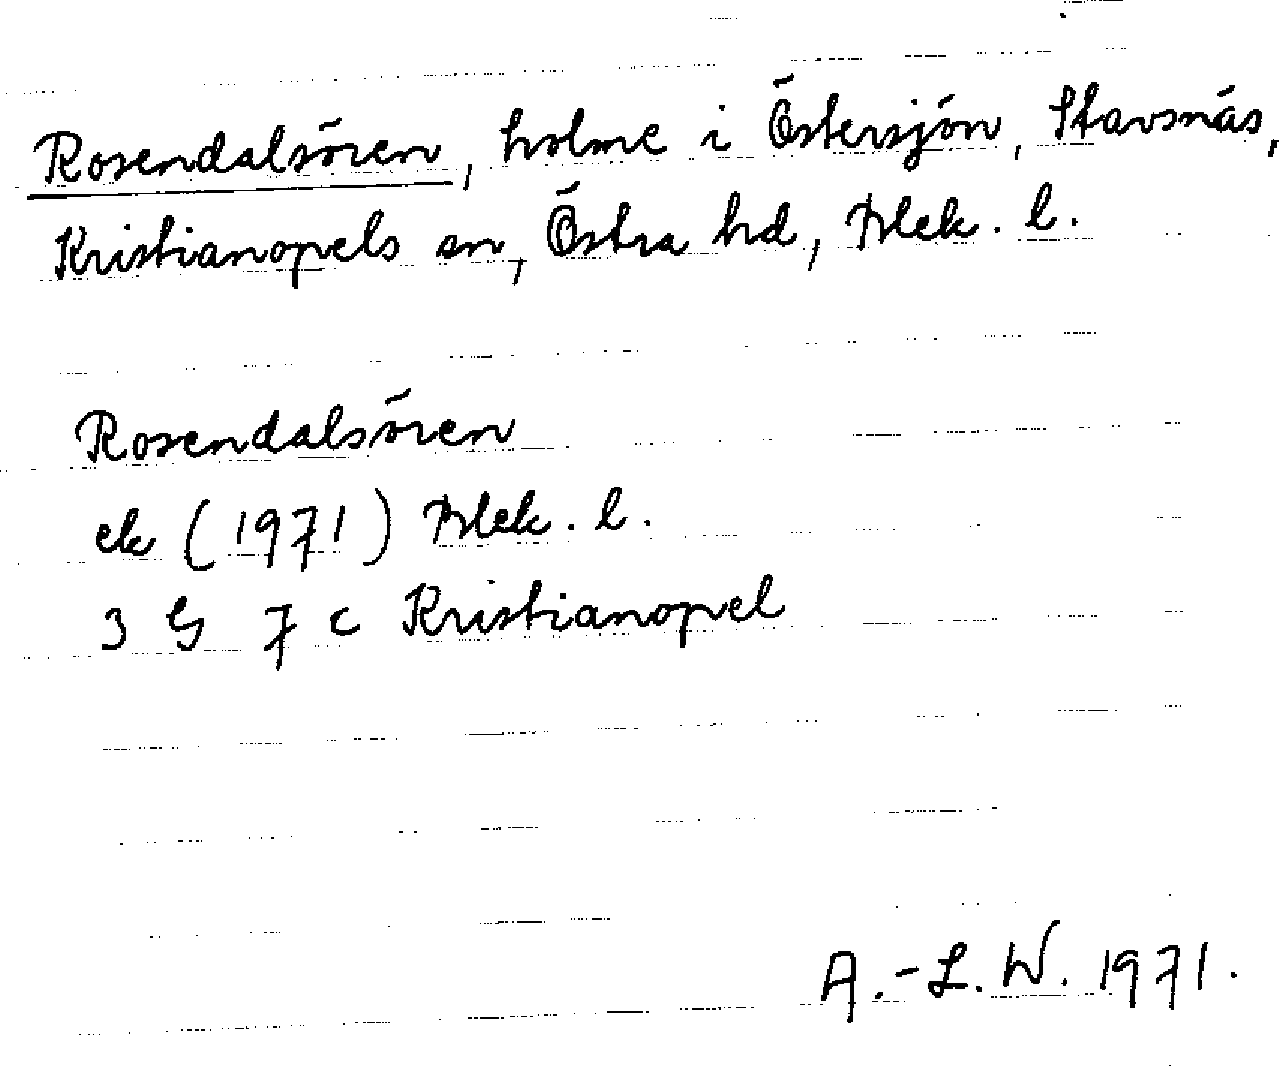 Rosendalsören, holme i Östersjön, Stavsnäs,
Kristianopels sn, Östra hd, Blek. l.
Rosendalsören
ek (1971) Blek. l.
3 G 7 c Kristianopel
A.-L. W. 1971.